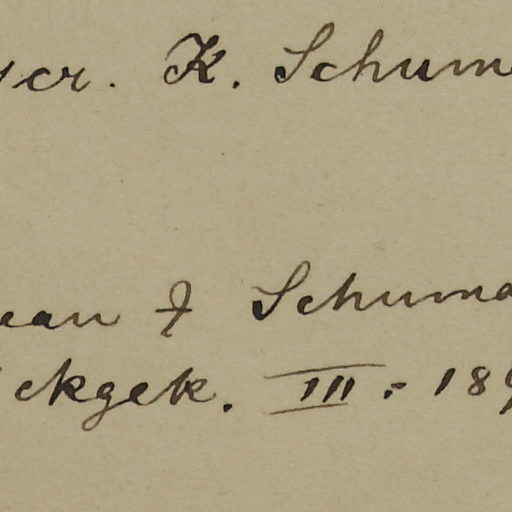 scr. K. Schum
ean & Schuma
ckgek. III. - 189